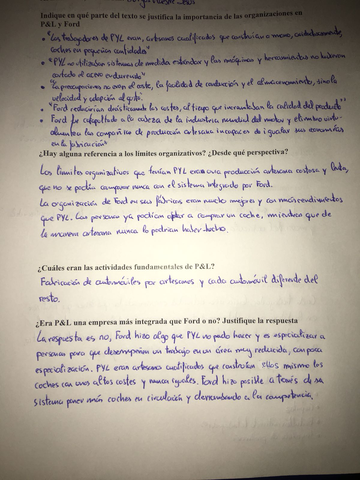 Indique en qué parte del texto se justifica la importancia de las organizaciones en
P&L y Ford
• "Los trabajadores de PYL eran, artesanos cualificados que construían a mano, cuidadosamente,
coches en pequeñas cantidades"
• "PYL no utilizaban sistemas de medidas estándar y las máquinas y herramientas no podían
cortado el acero endurecido"
• "La preocupaciones no eran el coste, la facilidad de conducción y el almacenamiento, sino la
velocidad y adopción al gusto."
• "Ford redujeron drásticamente los costes, al tiempo que incrementaban la calidad del producto"
• Ford fue catapultado a la cabeza de la industria mundial del motor y eliminó
las compañías de producción artesana incapaces de igualar sus economías
en la fabricación"
¿Hay alguna referencia a los límites organizativos? ¿Desde qué perspectiva?
Los límites organizativos que tenían PYL eran una producción artesana costosa y lenta,
que no se podía comparar nunca con el sistema integrado por Ford.
La organización de Ford en sus fábricas eran mucho mejores y con más rendimientos
que PYL. Las personas ya podían optar a comprar un coche, mientras que de
la manera artesana nunca lo podrían haber hecho.
¿Cuáles eran las actividades fundamentales de P&L?
Fabricación de automóviles por artesanos y cada automóvil diferente del
resto.
¿Era P&L una empresa más integrada que Ford o no? Justifique la respuesta
La respuesta es no, Ford hizo algo que PYL no pudo hacer y es especializar a
personas para que desempeñen un trabajo en un área muy reducida, con poca
especialización. PYL eran artesanos cualificados que construían ellos mismos los
coches con unos altos costes y nunca iguales. Ford hizo posible a través de su
sistema poner más coches en circulación y derrumbando a la competencia.